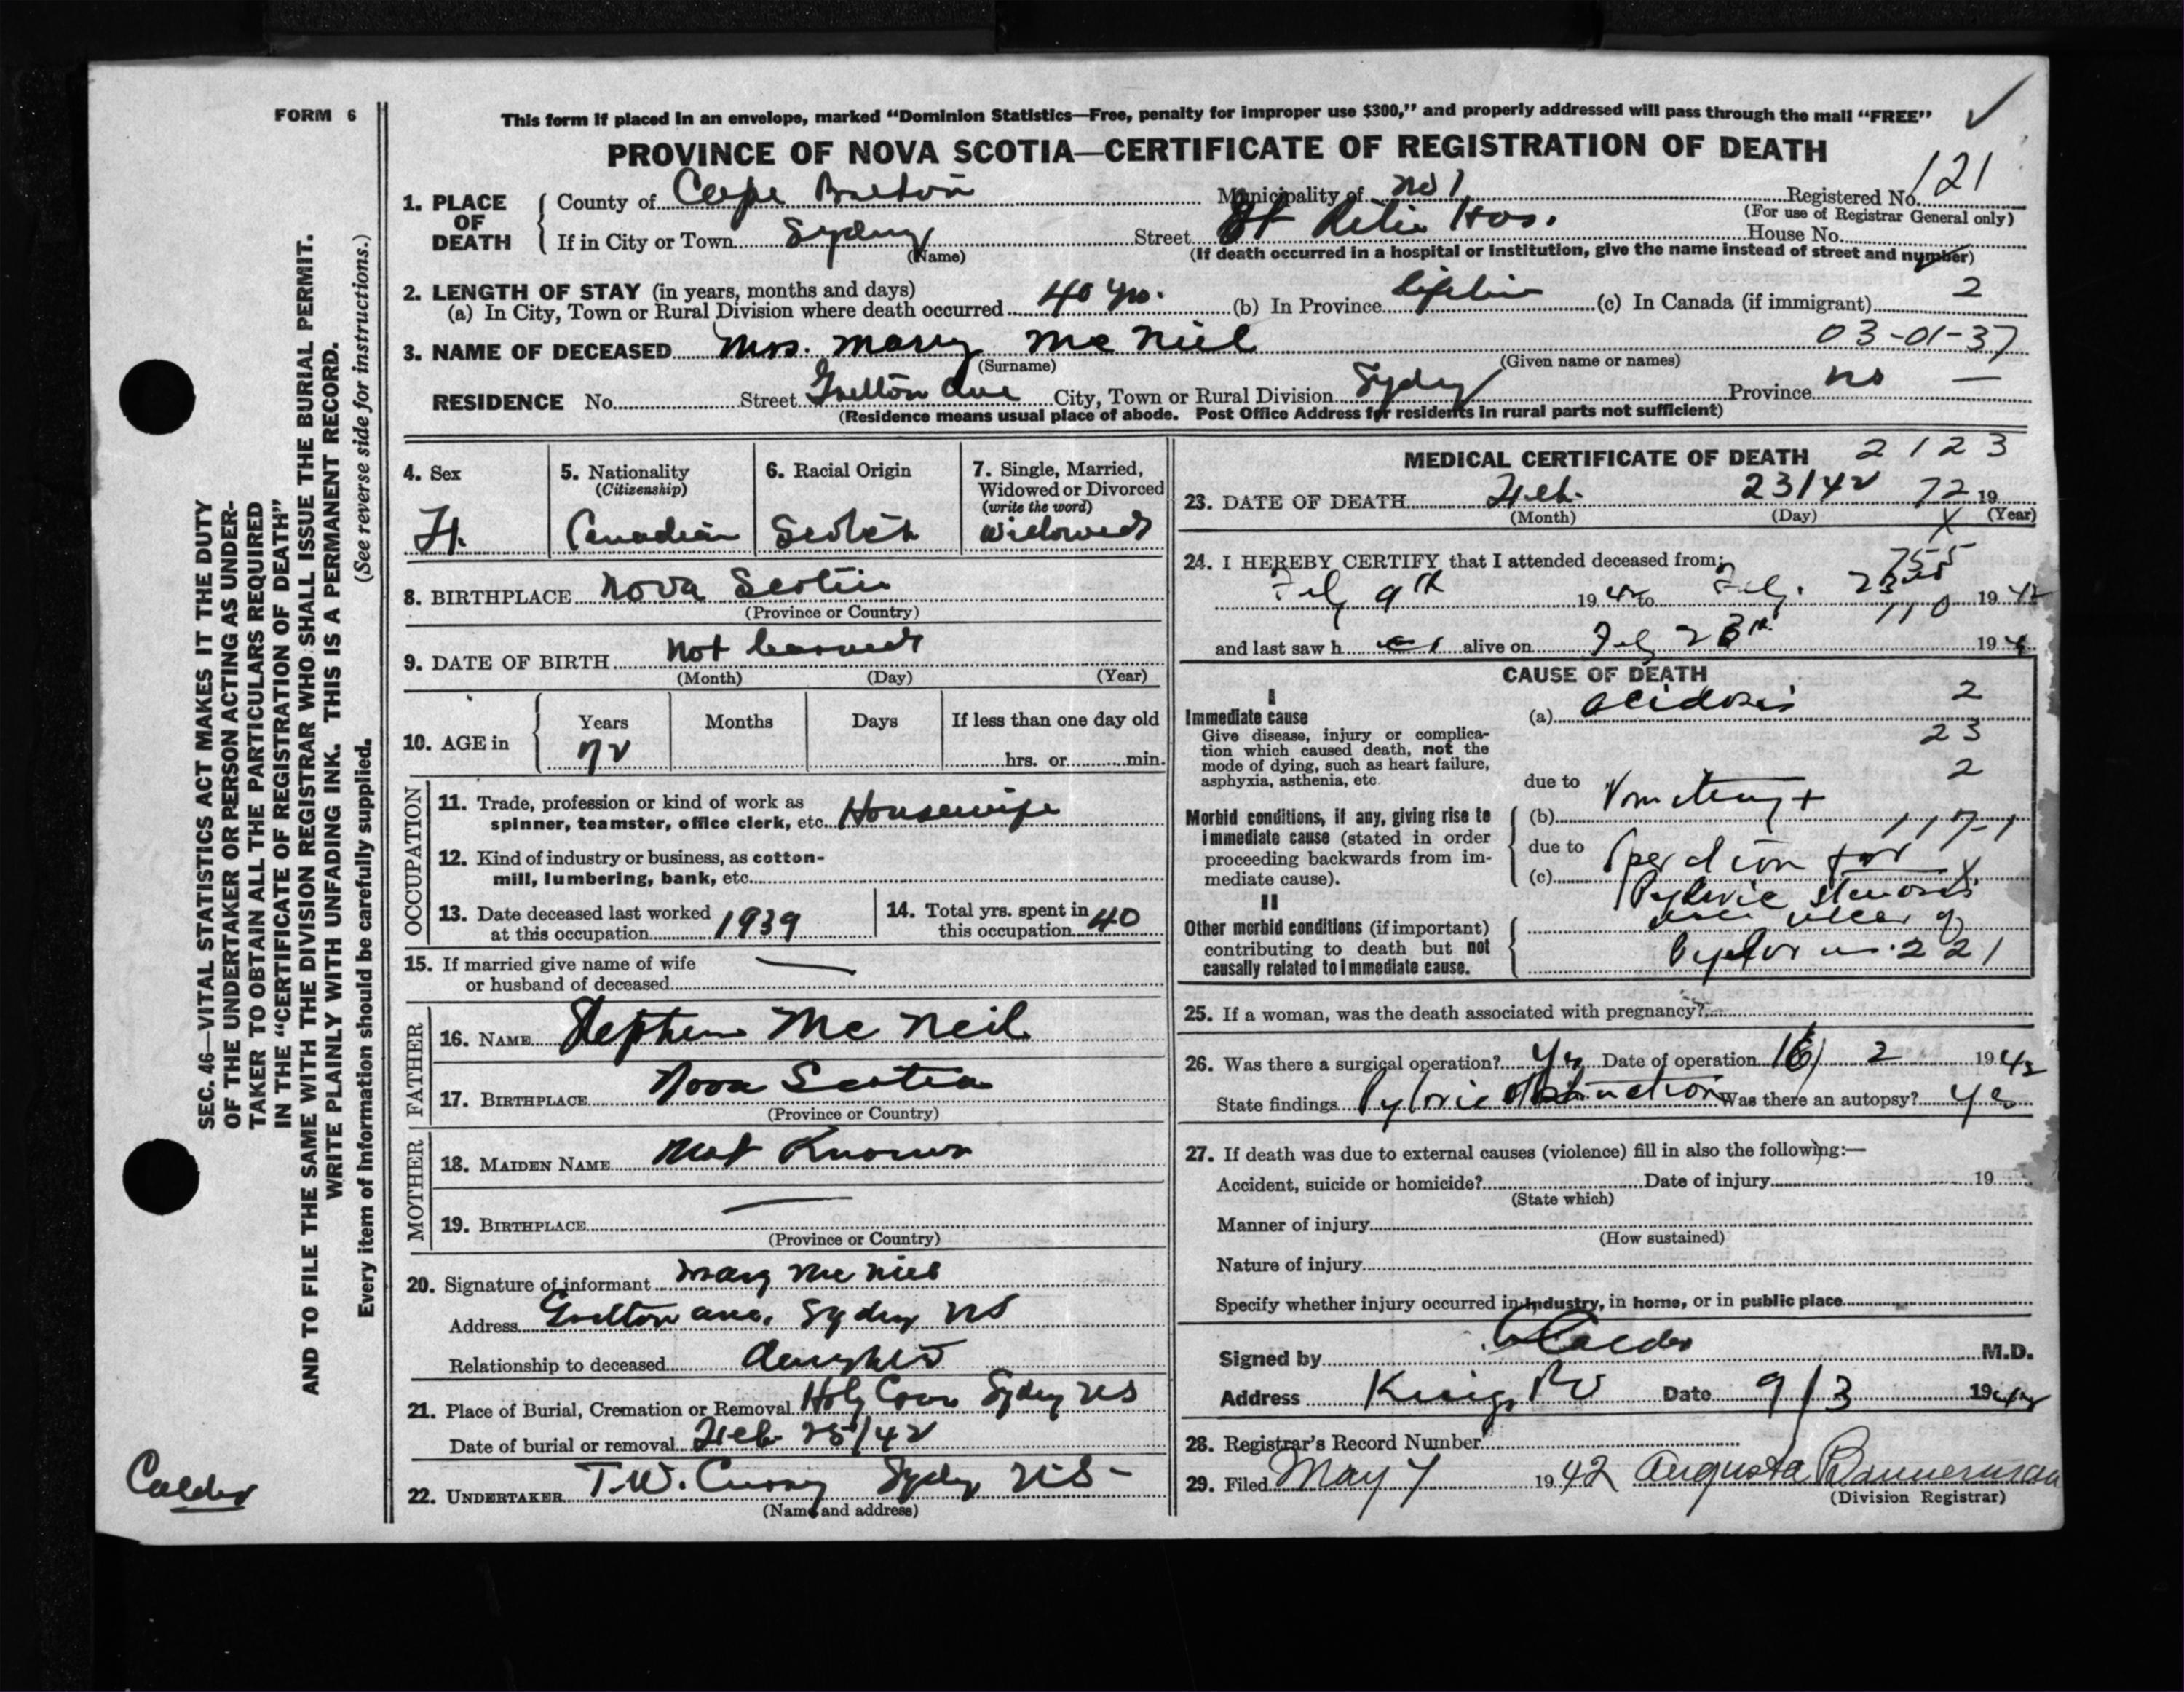 FORM 6
This form if placed in an envelope, marked “Dominion Statistics—Free, penalty for improper use $300,” and properly addressed will pass through the mail “FREE”
PROVINCE OF NOVA SCOTIA—CERTIFICATE OF REGISTRATION OF DEATH
1. PLACE OF DEATH
County of Cape Breton Municipality of No 1 Registered No. 121
(For use of Registrar General only)
If in City or Town Sydney Street St Rita Hos. House No.
(Name) (If death occurred in a hospital or institution, give the name instead of street and number)
2. LENGTH OF STAY (in years, months and days)
(a) In City, Town or Rural Division where death occurred 40 yrs. (b) In Province (c) In Canada (if immigrant) 2
3. NAME OF DECEASED Mrs. Mary Mc Niel 03-01-37
(Surname) (Given name or names)
RESIDENCE No. Street Ave City, Town or Rural Division Sydney Province NS —
(Residence means usual place of abode. Post Office Address for residents in rural parts not sufficient)
4. Sex F.
5. Nationality (Citizenship) Canadian
6. Racial Origin Scotch
7. Single, Married, Widowed or Divorced (write the word) Widowed
8. BIRTHPLACE Nova Scotia
(Province or Country)
9. DATE OF BIRTH Not learned
(Month) (Day) (Year)
10. AGE in Years 72 Months Days If less than one day old
hrs. or min.
OCCUPATION
11. Trade, profession or kind of work as spinner, teamster, office clerk, etc. Housewife
12. Kind of industry or business, as cotton-mill, lumbering, bank, etc.
13. Date deceased last worked at this occupation 1939
14. Total yrs. spent in this occupation 40
15. If married give name of wife or husband of deceased —
FATHER
16. NAME Stephen Mc Neil
17. BIRTHPLACE Nova Scotia
(Province or Country)
MOTHER
18. MAIDEN NAME Not Known
19. BIRTHPLACE —
(Province or Country)
20. Signature of informant Mary Mc Niel
Address Ave. Sydney NS
Relationship to deceased daughter
21. Place of Burial, Cremation or Removal Holy Cross Sydney NS
Date of burial or removal Feb 25/42
22. UNDERTAKER T.W. Curry Sydney NS -
(Name and address)
MEDICAL CERTIFICATE OF DEATH 2123
23. DATE OF DEATH Feb. 23/42 72 19
(Month) (Day) X (Year)
24. I HEREBY CERTIFY that I attended deceased from: 755
Feb 9th 1942 to Feb. 23rd 1942
110
and last saw her alive on Feb 23rd 194
CAUSE OF DEATH
I
Immediate cause
Give disease, injury or complication which caused death, not the mode of dying, such as heart failure, asphyxia, asthenia, etc.
(a) Acidosis 2
23
2
due to
Morbid conditions, if any, giving rise to immediate cause (stated in order proceeding backwards from immediate cause).
(b) Vomiting +
117-1
due to
(c) Operation for X
Pyloric Stenosis
II
Other morbid conditions (if important) contributing to death but not causally related to immediate cause.
ulcer of
Pylorus. 221
25. If a woman, was the death associated with pregnancy?
26. Was there a surgical operation? Yes Date of operation 16 2 1942
State findings Pyloric Obstruction Was there an autopsy? Yes
27. If death was due to external causes (violence) fill in also the following:—
Accident, suicide or homicide? Date of injury 19
(State which)
Manner of injury
(How sustained)
Nature of injury
Specify whether injury occurred in industry, in home, or in public place
Signed by Calder M.D.
Address Kings Rd Date 9/3 1942
28. Registrar's Record Number
29. Filed May 7 1942 Augusta Bannerman
(Division Registrar)
SEC. 46—VITAL STATISTICS ACT MAKES IT THE DUTY
OF THE UNDERTAKER OR PERSON ACTING AS UNDER-
TAKER TO OBTAIN ALL THE PARTICULARS REQUIRED
IN THE “CERTIFICATE OF REGISTRATION OF DEATH”
AND TO FILE THE SAME WITH THE DIVISION REGISTRAR WHO SHALL ISSUE THE BURIAL PERMIT.
WRITE PLAINLY WITH UNFADING INK. THIS IS A PERMANENT RECORD.
Every item of information should be carefully supplied. (See reverse side for instructions.)
Calder